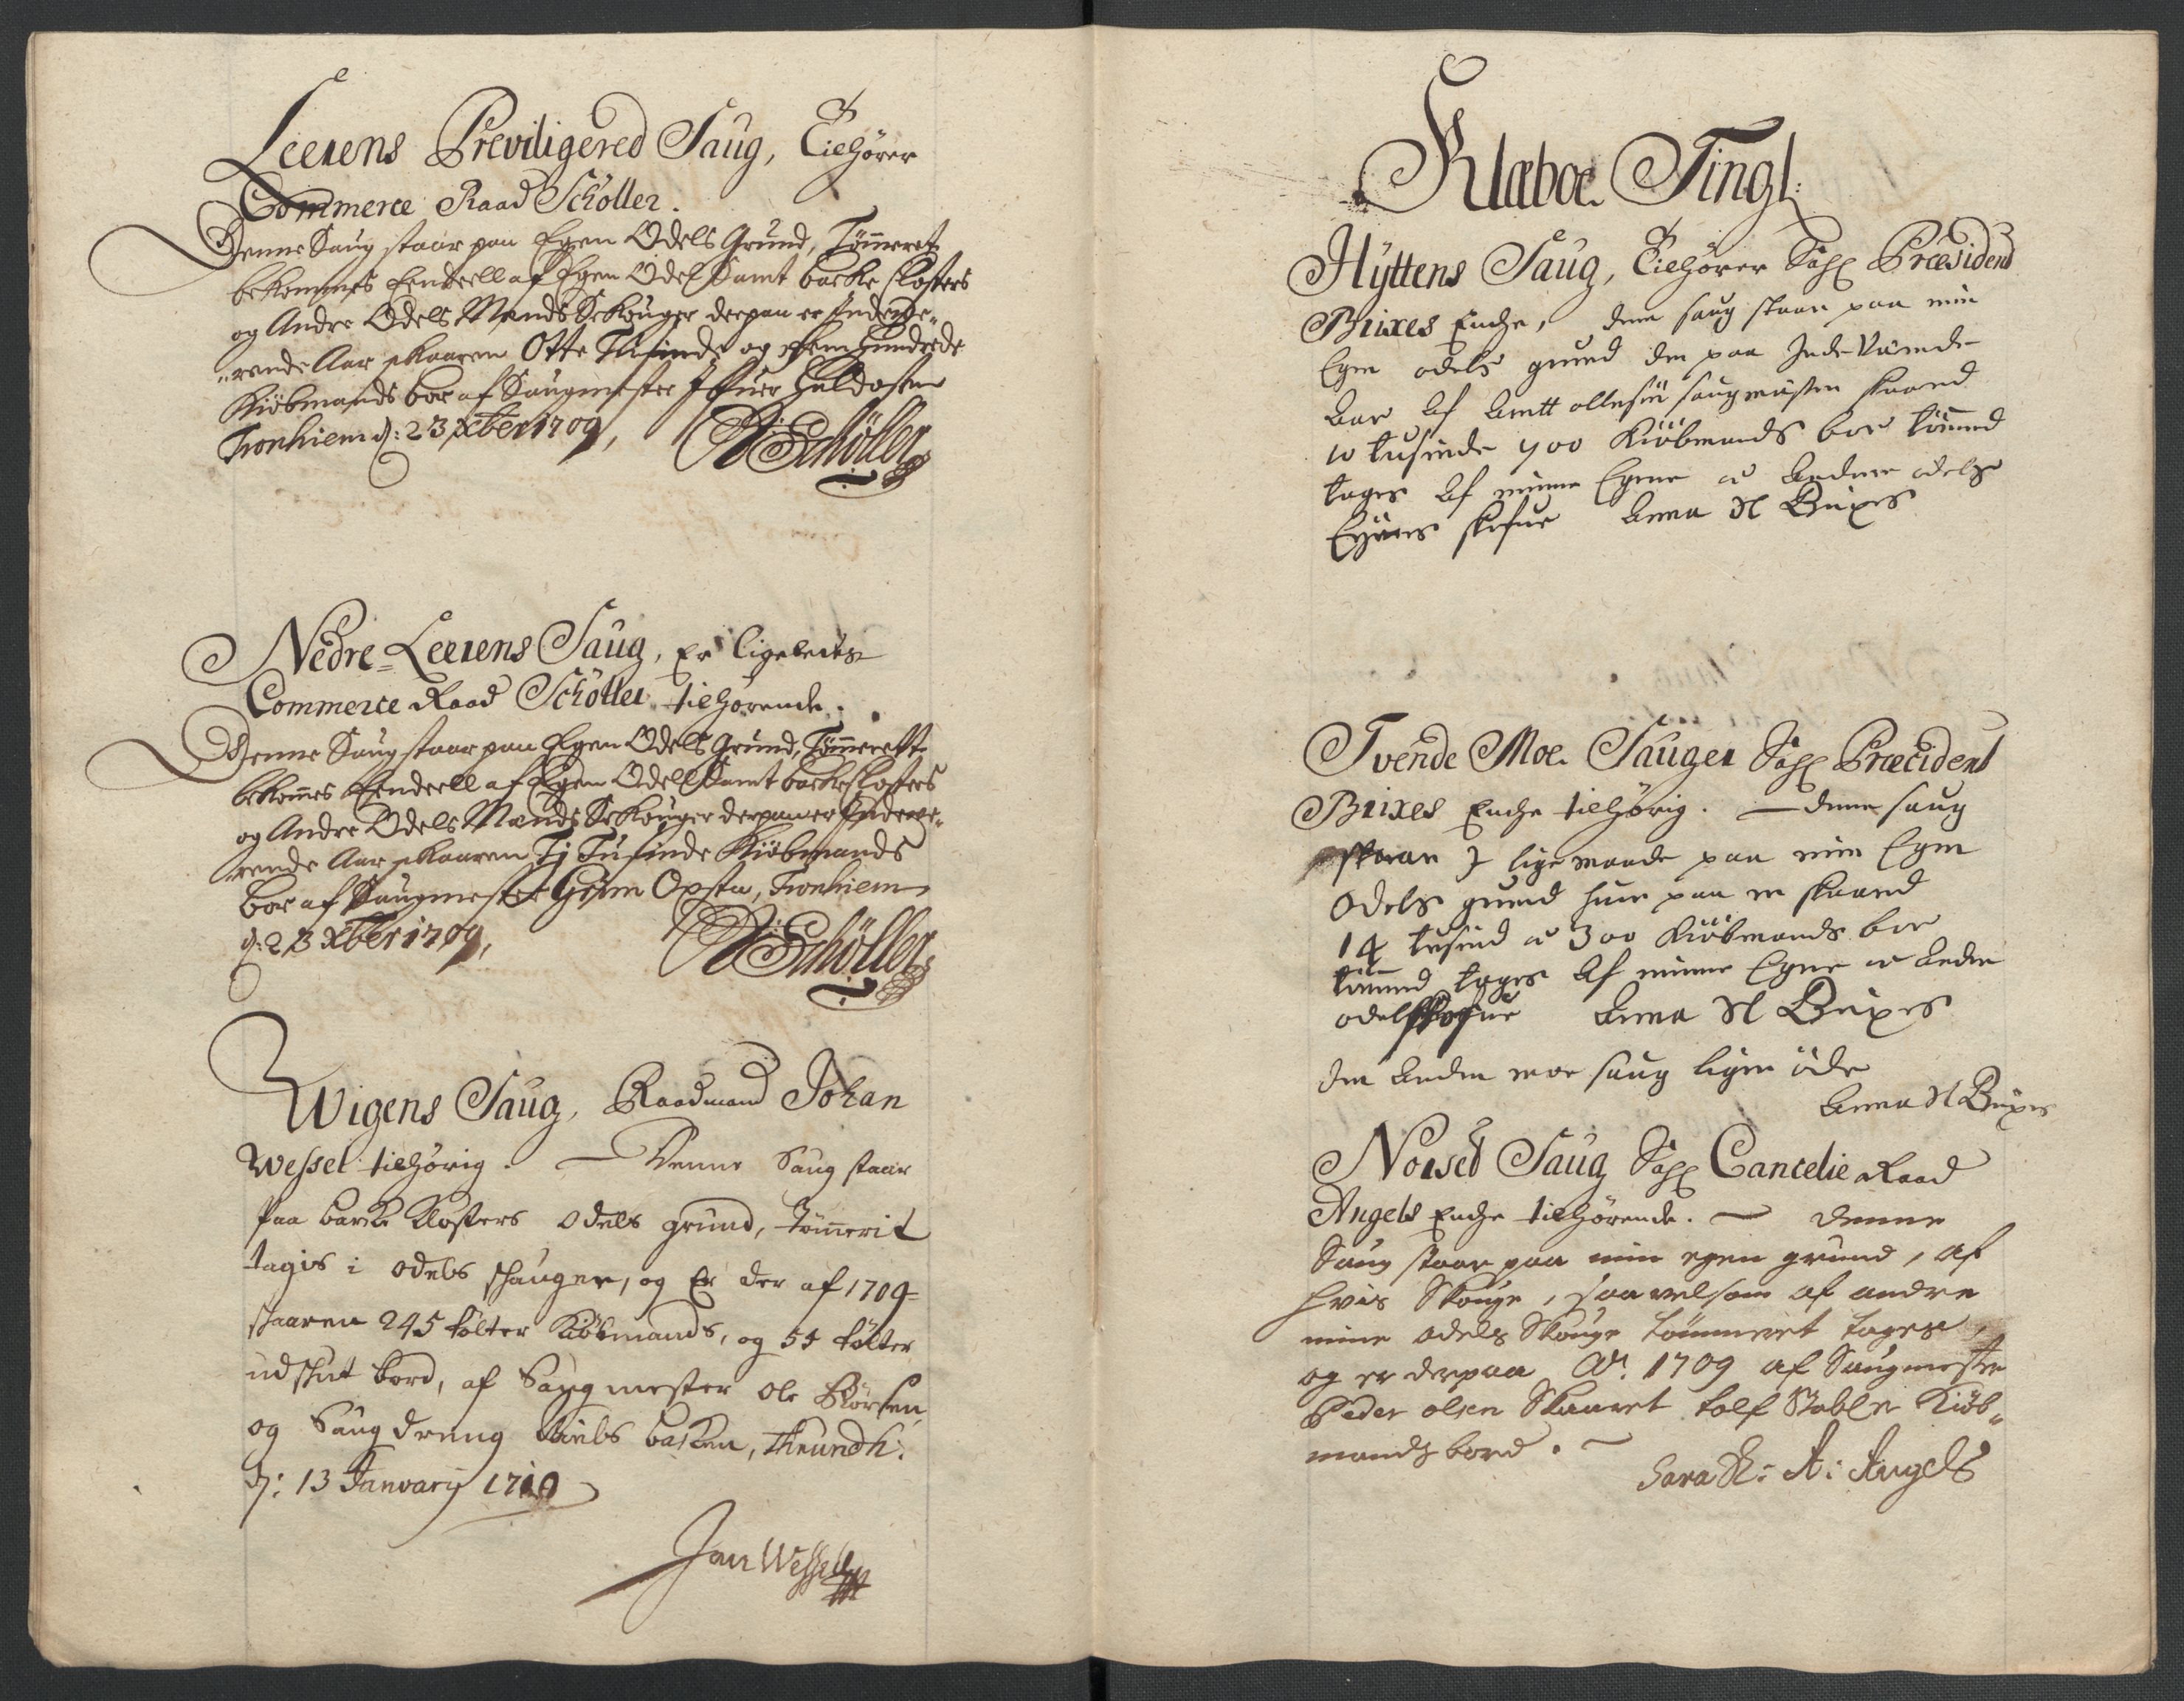 Leerens Previligered Saug, Tilhører
Commerce Raad Schöller.
Denne Saug staar paa Egen Odels Grund, Tömeret
bekommes Eendeell af Egen Odel Samt backe Closters
og Andre Odels Mænds Skouger derpaa er Indevæ-
rende Aar skaaren Otte Tusinde og fem Hundrede
Kiöbmands bor af Saugmester Iffuer Haldosen
Tronhiem d: 23 xber 1709,
Schöller
Nedre-Leerens Saug, Er ligeleedes
Commerce Raad Schöller tilhörende.
Denne Saug staar paa Egen Odels Grund, Tömerett
bekomes Eendeell af Egen Odell Samt backe Closters
og Andre Odels Mænds Skouger derpaa er Indevæ-
rende Aar skaaren Tj Tusinde Kiöbmands
bor af Saugmester Opsta, Tronhiem
d: 23 xber 1709,
Schöller
Wigens Saug, Raadmand Johan
Wessel tilhörig. — Denne Saug staar
paa backe Klosters odels grund, tömerit
tagis i odels skauger, og Er der af 1709
skaaren 245 tölter Kiöbmands, og 55 tölter
udskut bord, af Saugmester Ole
og Saugdreng backen, Thrundh:
d: 13 January 1710
Jan Wessell
Klæboe Tingl:
Hyttens Saug, Tilhører Sahl Præsident
Brixes Enche, denn saug staar paa min
Egen odels grund der paa Inde Værende
aar af arntt ollesøn saugmister skaared
10 tusinde 700 Kiöbmands bor tömmed
tages af minne Egene oc andere odels
Eyeres skofue Anna Sl Brixes
Tvende Moe Sauger Sahl Præcident
Brixes Enche tilhörig. — denn saug
staar J lige maade paa min Egen
odels grund huor paa er skaared
14 tusind oc 300 Kiöbmands bor
tömmed tages af minne Egne oc andre
odelskofue Anna Sl Brixes
den anden moe saug ligger öde
Anna Sl Brixes
Norsed Saug Sahl Cancelie Raad
Angels Enche tilhörende. — Denne
Saug staar paa min egen grund, af
hvis Skouge, saavelsom af andre
mine odels Skouge tömmeret tages,
og er derpaa Ao. 1709 af Saugmester
Peder olsen Skaaret tolf Stabler Kiöb-
mands bord. —
Sara Sl: A: Angels